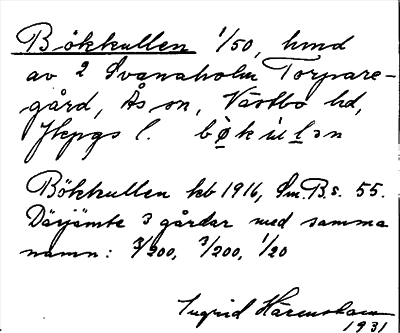 Bökkullen 1/50, hmd
av 2 Svanaholm Torpare-
gård, Ås sn, Västbo hd,
Jkpgs l. bø̀kùl̥ən
Bökkullen kb 1916, Sm.B.s. 55.
Därjämte 3 gårdar med samma
namn: 3/200, 3/200, 1/20
Ingrid Härenstam
1931